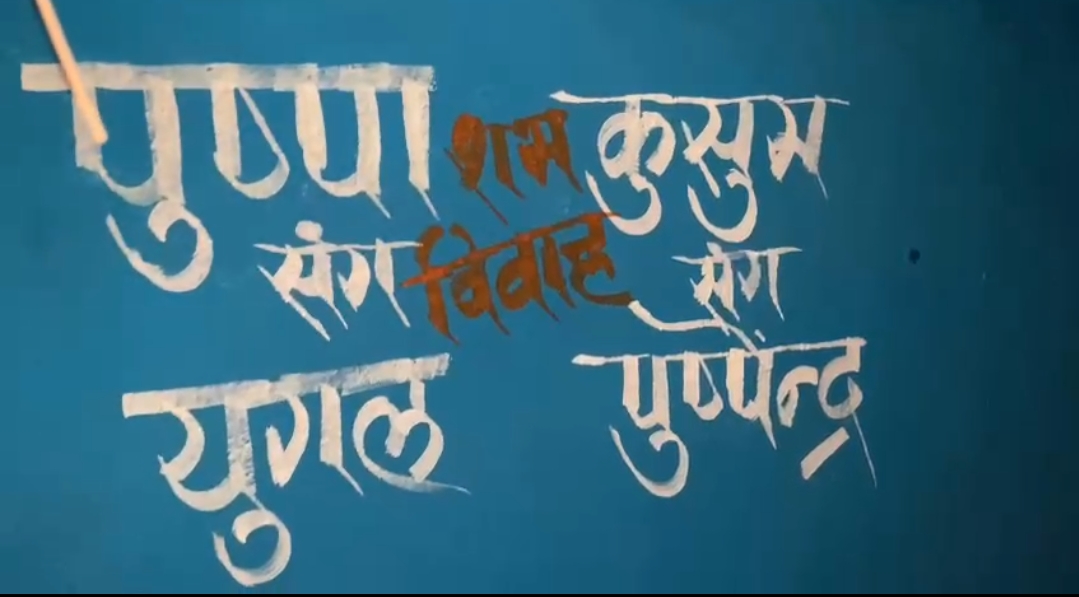 पुष्पा शुभ कुसुम
संग विवाह संग
युगल पुष्पेन्द्र